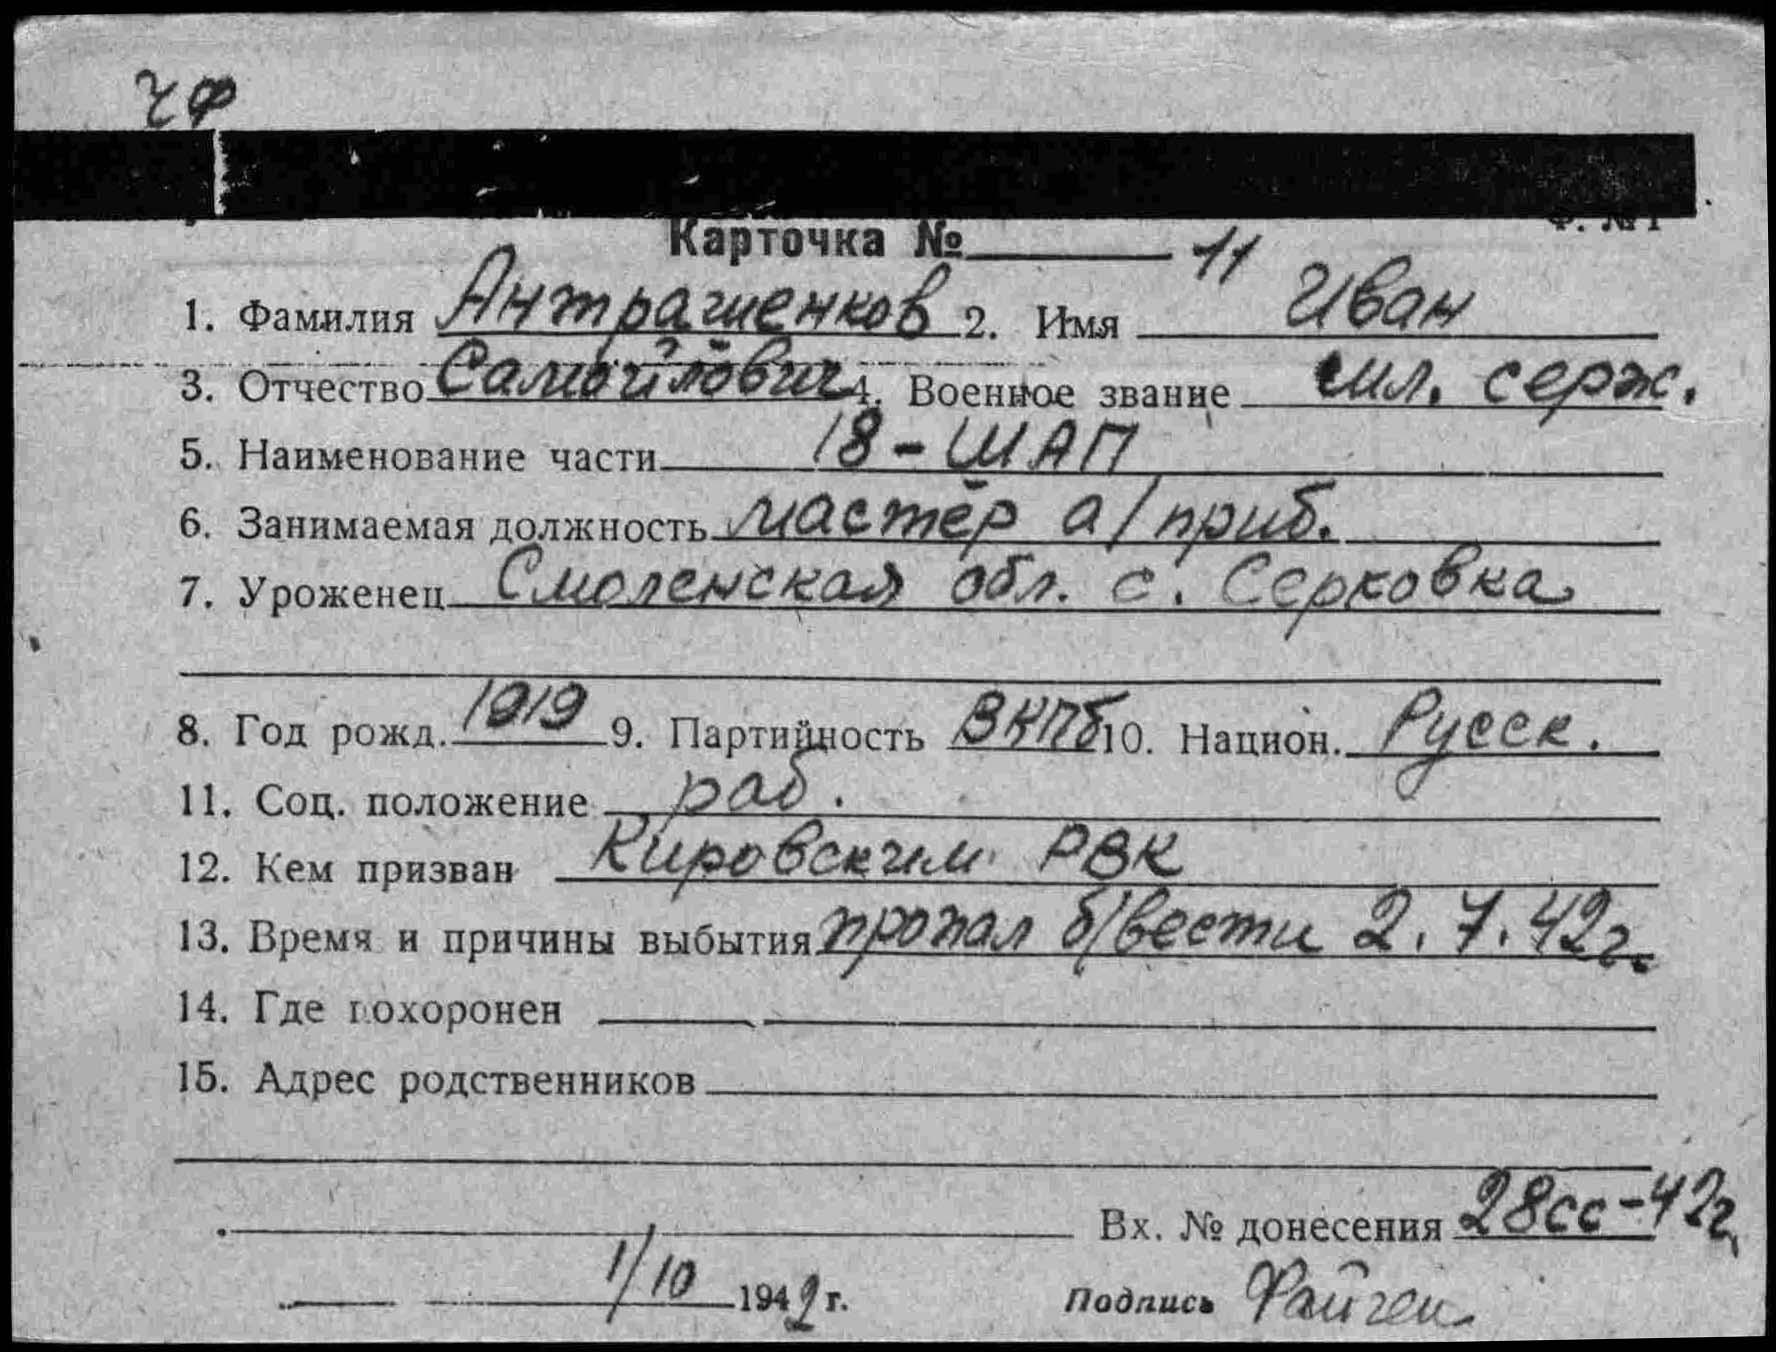 ЧФ
Ф. №1
Карточка № 11
1. Фамилия Антрашенков 2. Имя Иван
3. Отчество Самойлович 4. Военное звание мл. серж.
5. Наименование части 18-ШАП
6. Занимаемая должность мастер а/приб.
7. Уроженец Смоленская обл. с. Серковка
8. Год рожд. 1919 9. Партийность ВКПб 10. Национ. Русск.
11. Соц. положение раб.
12. Кем призван Кировским РВК
13. Время и причины выбытия пропал б/вести 2.7.42г.
14. Где похоронен
15. Адрес родственников
Вх. № донесения 28сс-42г
1/10 1942 г. Подпись